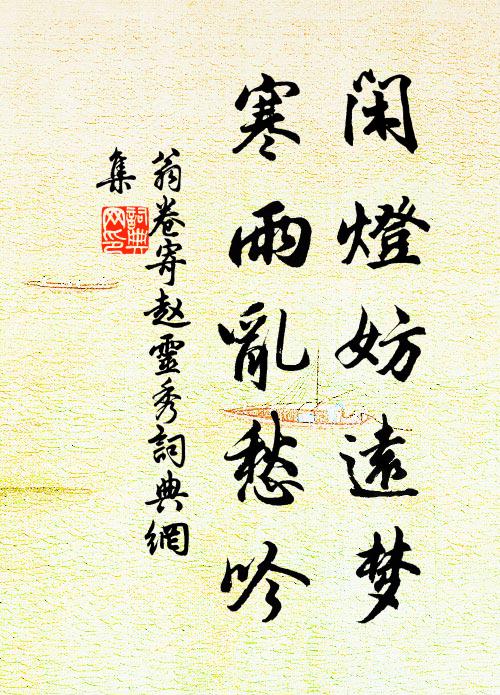 閑燈妨遠梦
寒雨亂愁吟
翁卷寄赵靈秀詞典網
集
詞典网印